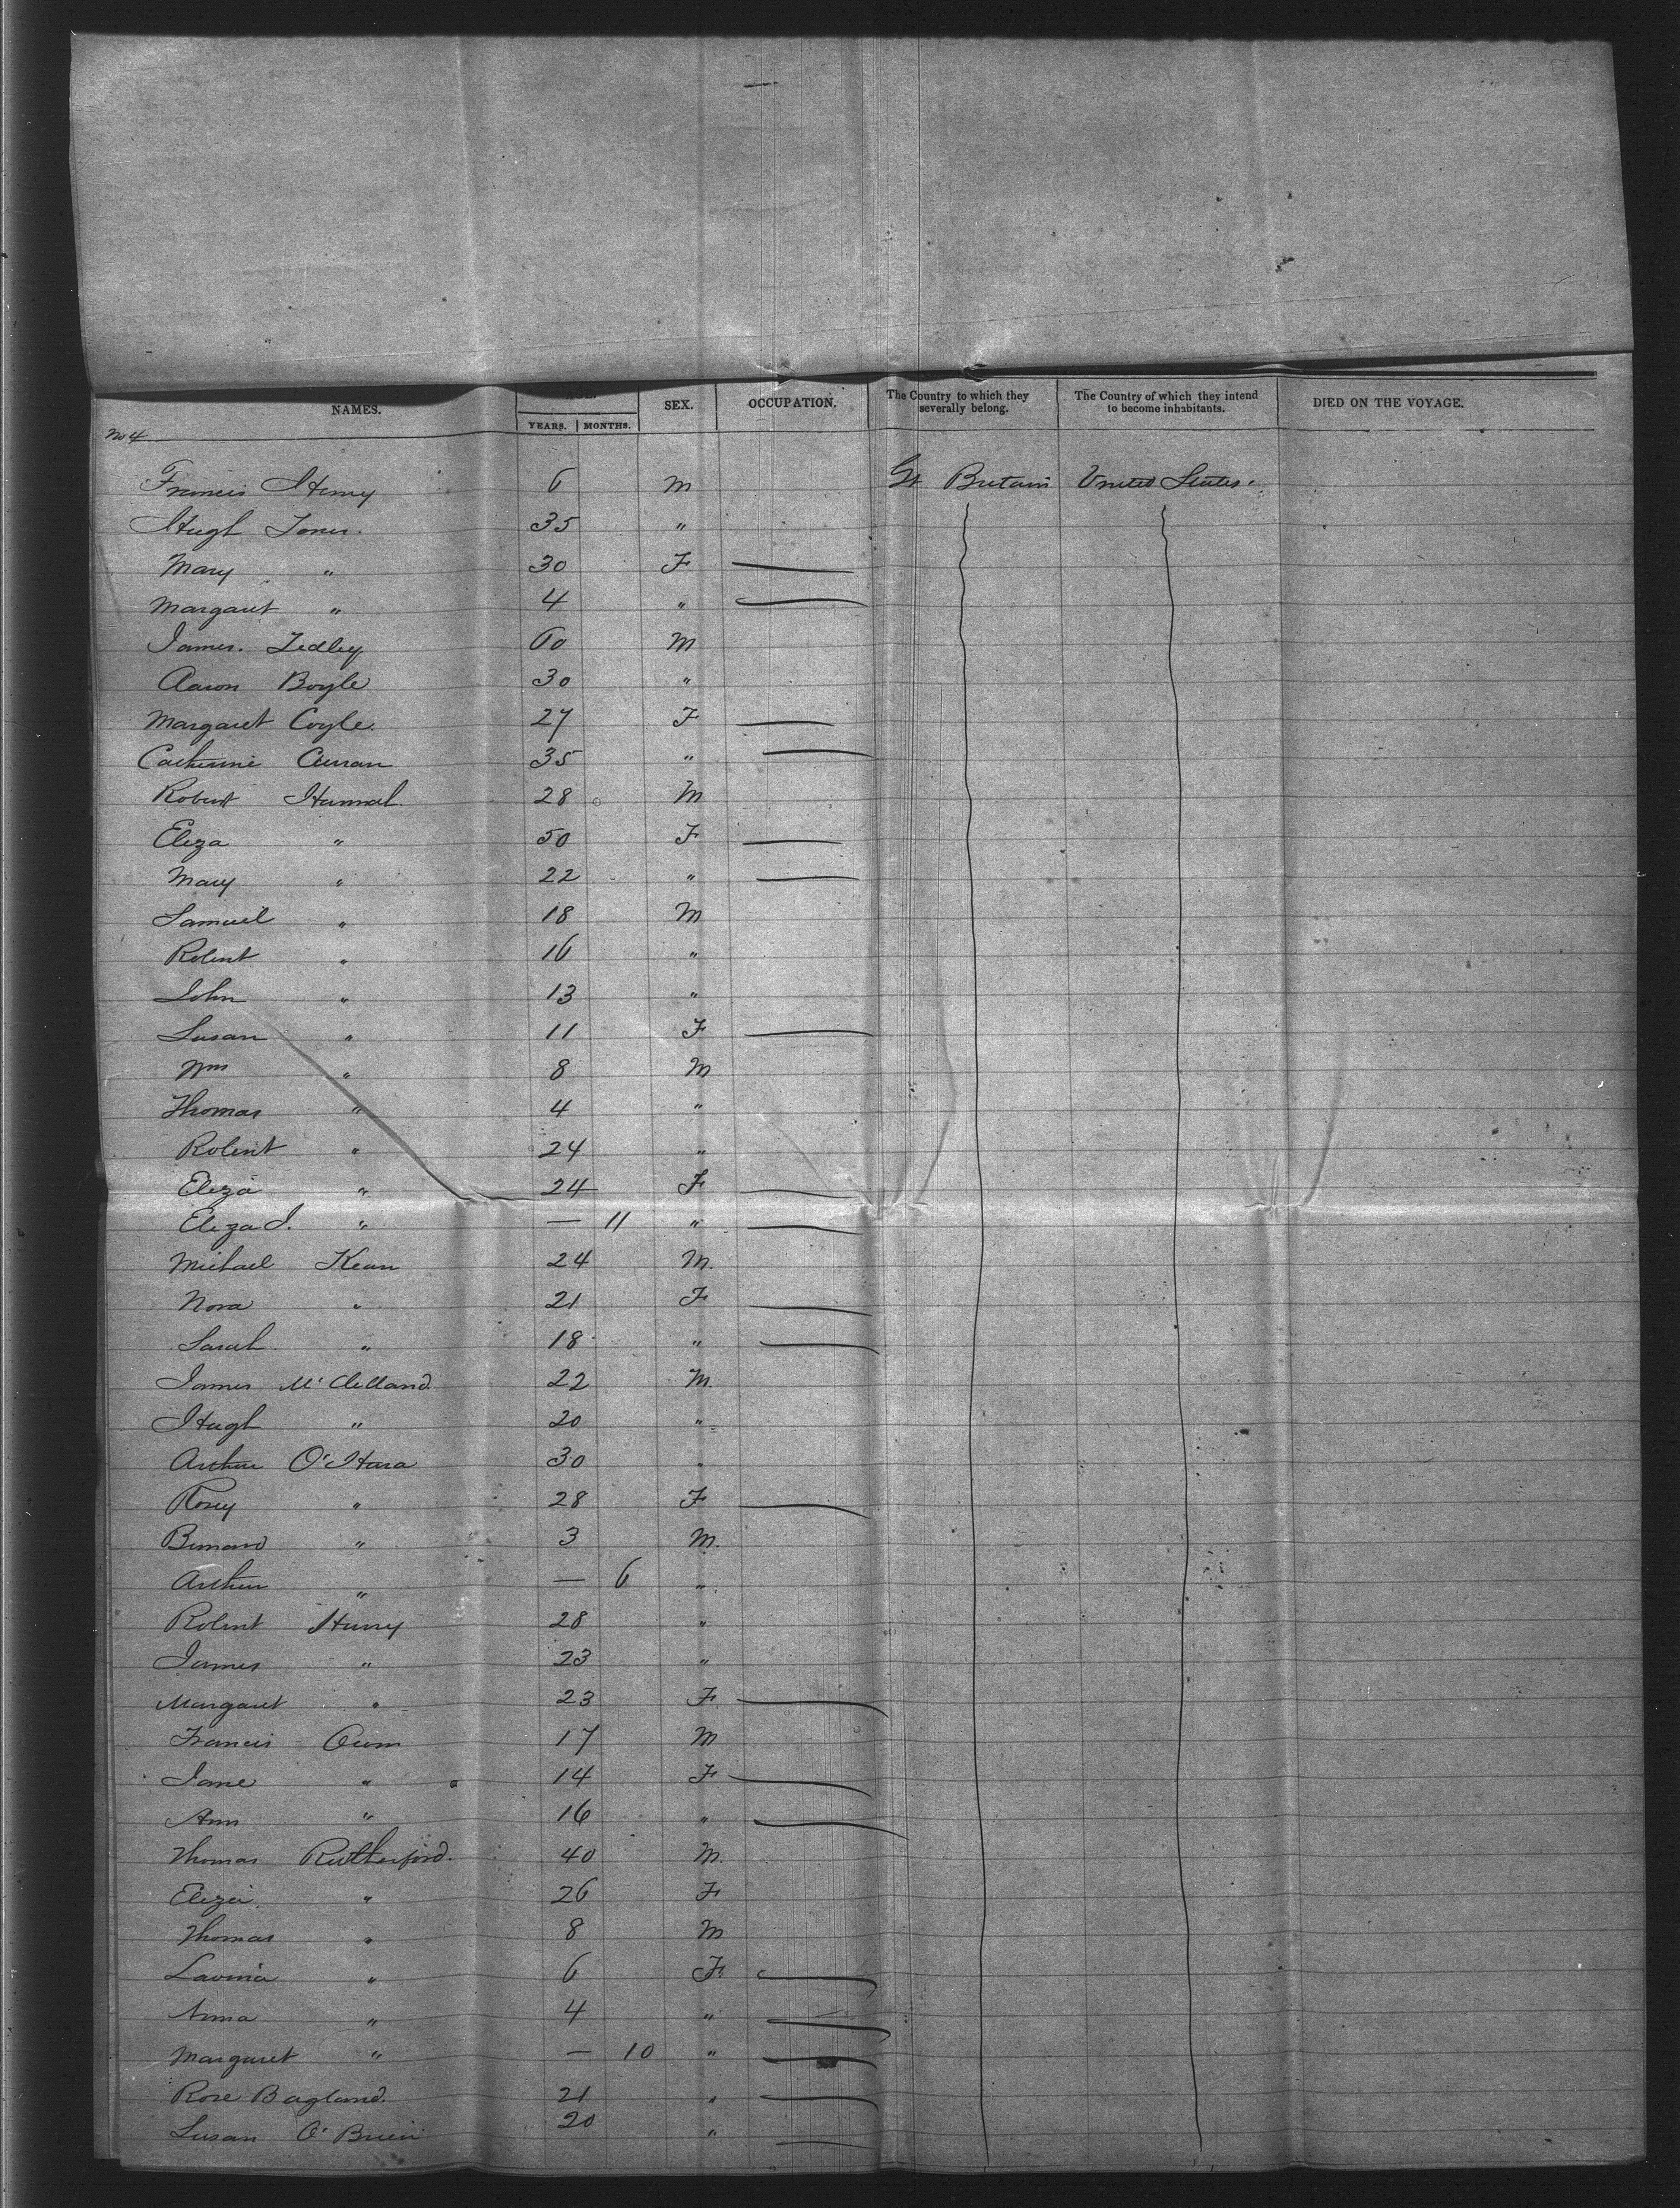 NAMES. AGE. SEX. OCCUPATION. The Country to which they severally belong. The Country of which they intend to become inhabitants. DIED ON THE VOYAGE.
YEARS. MONTHS.
No 4
Francis Henry 6 M Gt Britain United States.
Hugh Jones. 35 "
Mary " 30 F
Margaret " 4 "
James. Tedley 60 M
Aaron Boyle 30 "
Margaret Coyle. 27 F
Catherine Curran 35 "
Robert Hannah 28 M
Eliza " 50 F
Mary " 22 "
Samuel " 18 M
Robert " 16 "
John " 13 "
Susan " 11 F
Wm " 8 M
Thomas " 4 "
Robert " 24 "
Eliza " 24 F
Eliza J. " — 11 "
Michael Kean 24 M.
Nora " 21 F
Sarah " 18 "
James McClelland 22 M.
Hugh " 20 "
Arthur O'Hara 30 "
Rosey " 28 F
Bernard " 3 M.
Arthur " — 6 "
Robert Henry 28 "
James " 23 "
Margaret " 23 F
Francis 17 M
Jane " 14 F
Ann " 16 "
Thomas Rutherford. 40 M.
Eliza " 26 F
Thomas " 8 M
Lavinia " 6 F.
Anna " 4 "
Margaret " — 10 "
Rose Bagland. 21 "
Susan O'Brien 20 "